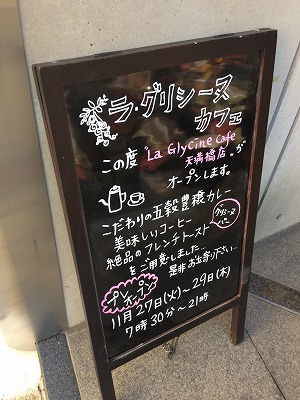 ラ・グリシーヌ
カフェ
この度 "La Glycine Cafe
天満橋店"が
オープンします。
こだわりの五穀豊穣カレー
美味しいコーヒー
絶品のフレンチトースト
をご用意しました…
是非お立寄り下さい…
プレオープン
11月27日(火)〜29日(木)
7時30分〜21時